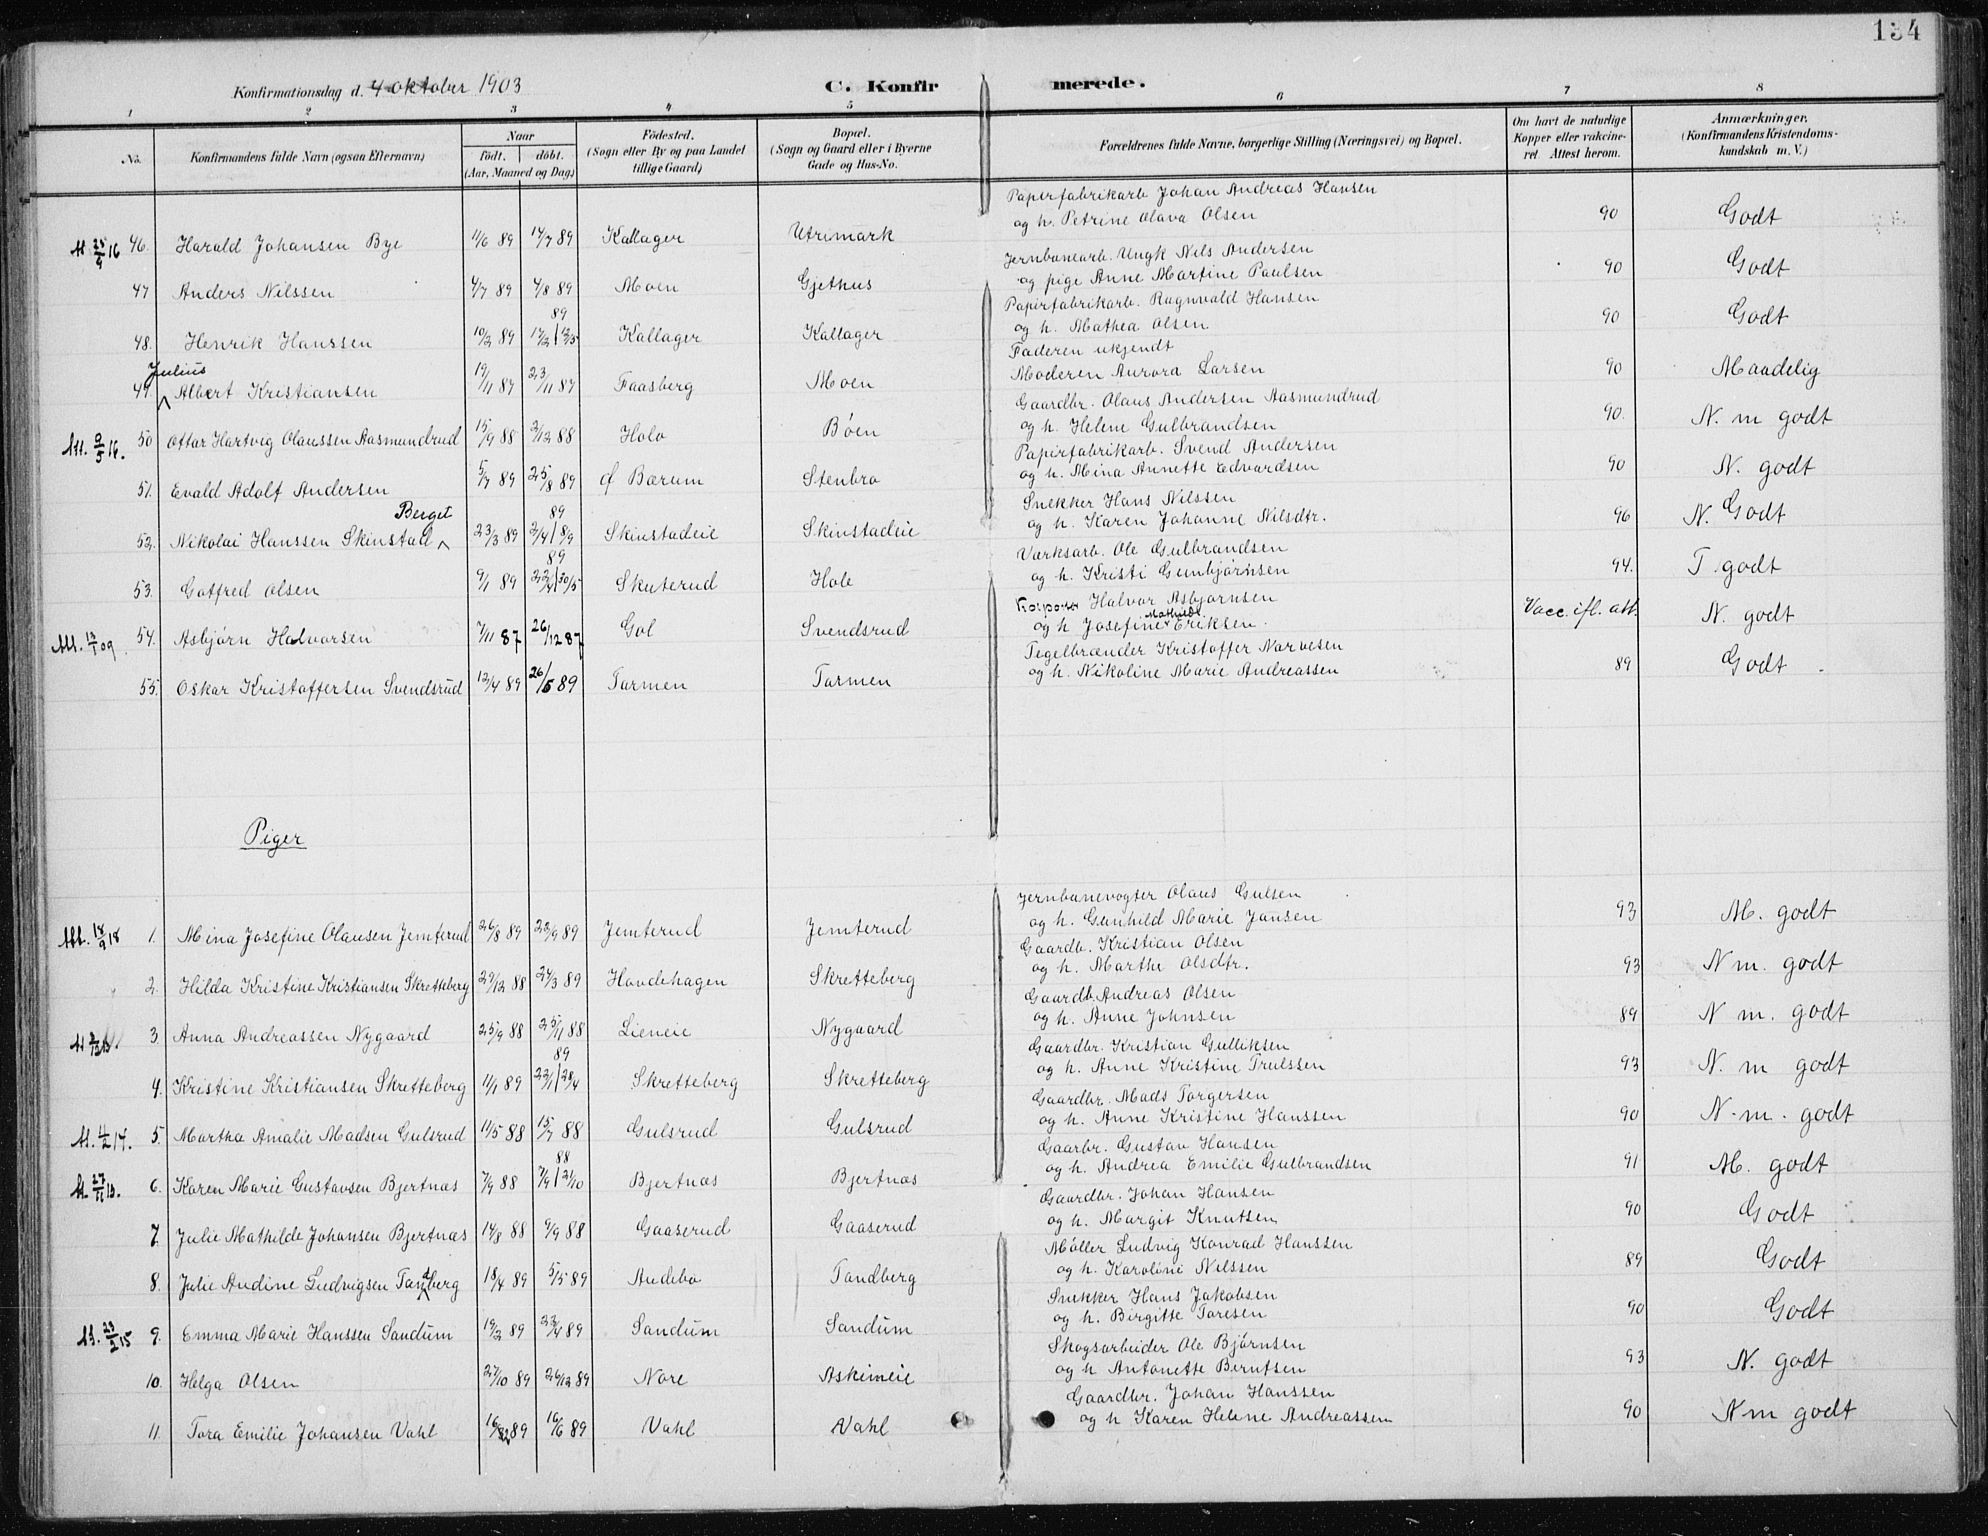 134
Konfirmationsdag d. 4 oktober 1903 C. Konfirmerede.
1 2 3 4 5 6 7 8
No. Konfirmandens fulde Navn (ogsaa Efternavn) Naar født. døbt. (Aar, Maaned og Dag) Fødested. (Sogn eller By og paa Landet tillige Gaard) Bopæl. (Sogn og Gaard eller i Byerne Gade og Hus-No. Forældrenes fulde Navne, borgerlige Stilling (Næringsvei) og Bopæl. Om havt de naturlige Kopper eller vakcineret. Attest herom. Anmærkninger. (Konfirmandens Kristendomskundskab m. V.)
Papirfabrikarb. Johan Andreas Hansen
46. Harald Johansen Bye 11/6 89 14/7 89 Kallager Utrimark og h. Petrine Olava Olsen 90 Godt
Jernbanearb. Ungk Nils Andersen
47 Anders Nilssen 4/7 89 4/8 89 Moen Gjethus og pige Anne Martine Paulsen 90 Godt
Papirfabrikarb. Ragnvald Hansen
48. Henrik Hanssen 10/2 89 17/2 | 12/5 89 Kallager Kallager og h. Mathea Olsen 90 Godt
Faderen ukjendt
49. Julius Albert Kristiansen 19/11 87 23/11 87 Faasberg Moen Moderen Aurora Larsen 90 Maadelig
Gaardbr. Olaus Andersen Aasmundrud
M. 9/5 16. 50 Ottar Hartvig Olaussen Aasmundrud 15/9 88 2/12 88 Holo Bøen og h. Helene Gulbrandsen 90. N. m godt
Papirfabrikarb. Svend Andersen
51. Evald Adolf Andersen 5/7 89 25/8 89 Ø Bærum Stenbro og h. Mina Annette Edvardsen 90 N. godt
Snekker Hans Nilssen
52. Nikolai Hanssen Skinstad Berget 23/3 89 2/4 | 8/9 89 Skinstadeie Skinstadeie og h. Karen Johanne Nilsdtr. 96 N. Godt
Værksarb. Ole Gulbrandsen
53. Gotfred Olsen 9/1 89 22/4 | 30/5 89 Skuterud Hole og h. Kristi Gunbjørnsen 94. T. godt
Halvor Asbjørnsen
M. 13/1 09. 54. Asbjørn Halvorsen 7/11 87 26/12 87 Gol Svendsrud og h Josefine Mathilde Eriksen. Vacc. ifl. att. N. godt
Tegelbrænder Kristoffer Narvesen
55. Oskar Kristoffersen Svendsrud 12/4 89 26/5 89 Tarmen Tarmen og h. Nikoline Marie Andreassen 89 Godt
Piger
Jernbanevogter Olaus Gulsen
M. 18/9 18 1. Mina Josefine Olausen Jemterud 26/8 89 22/9 89 Jemterud Jemterud og h. Gunhild Marie Jansen 93 M. godt
Gaardb. Kristian Olsen
2. Hilda Kristine Kristiansen Skretteberg 29/12 88 24/3 89 Hovdehagen Skretteberg og h. Marthe Olsdtr. 93 N m. godt
Gaardb. Andreas Olsen
3. Anna Andreassen Nygaard 25/9 88 25/11 88 Lieneie Nygaard og h. Anne Johnsen 89 N m. godt
Gaardbr. Kristian Gulliksen
4. Kristine Kristiansen Skretteberg 11/1 89 22/1 | 28/4 89 Skretteberg Skretteberg og h. Anne Kristine Trulssen 93 N. m godt
Gaardbr. Mads Torgersen
5. Martha Amalie Madsen Gulsrud 11/5 88 15/7 88 Gulsrud Gulsrud og h. Anne Kristine Hanssen 90 N. m. godt
Gaarbr. Gustav Hansen
6. Karen Marie Gustavsen Bjertnæs 7/9 88 7/9 | 21/10 88 Bjertnæs Bjertnæs og h. Andrea Emilie Gulbrandsen 91 M. godt
Gaardbr. Johan Hansen
7. Julie Mathilde Johansen Bjertnæs 14/8 88 9/9 88 Gaaserud Gaaserud og h. Margit Knutsen 90 Godt
Møller Ludvig Konrad Hanssen
8. Julie Andine Ludvigsen Tandberg 18/4 89 5/5 89 Andebo Tandberg og h. Karoline Nilssen 89 Godt
Snekker Hans Jakobsen
9. Emma Marie Hanssen Sandum 19/2 89 22/4 89 Sandum Sandum og h. Birgitte Toresen 90 Godt
Skogsarbeider Ole Bjørnsen
10. Helga Olsen 27/10 89 26/12 89 Nore Askimeie og h Antonette Berntsen 93 N. godt
Gaardbr. Johan Hanssen
11. Tora Emilie Johansen Vahl 89 16/6 89 Vahl Vahl og h Karen Helene Andreassen 90 N m godt